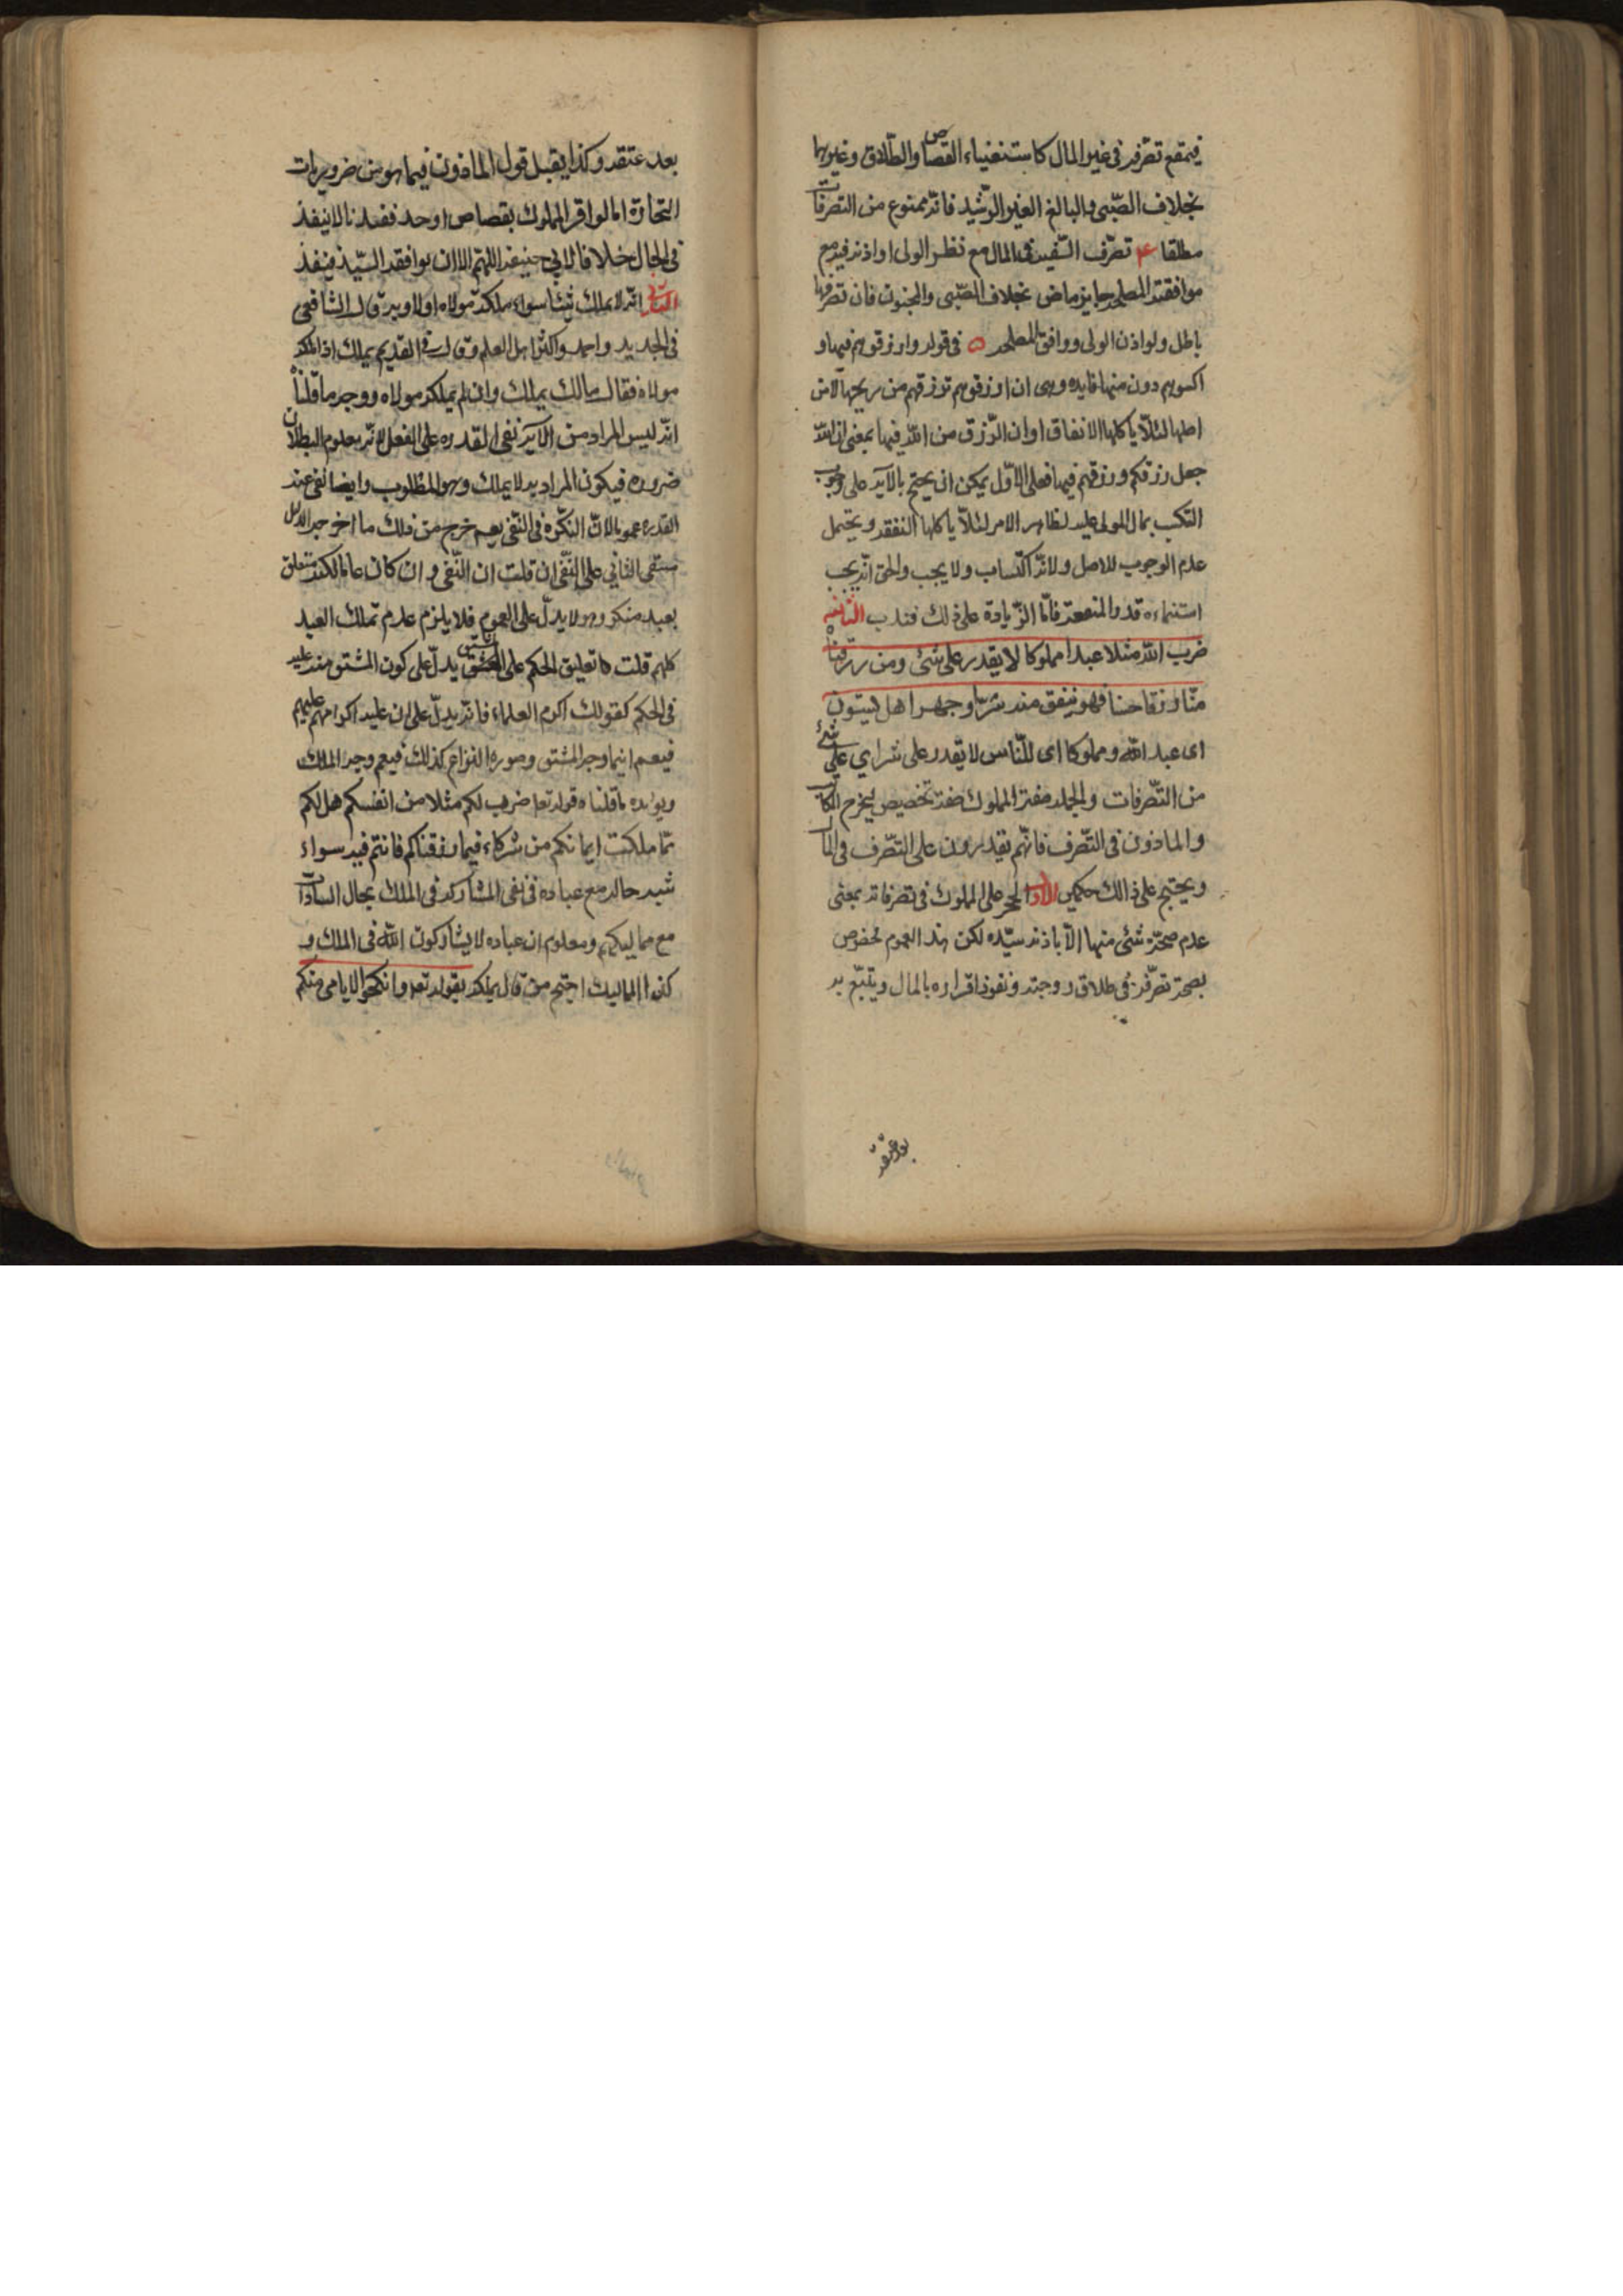 فيمتنع تصرفه فى غير المال كاستيفاء القصاص والطلاق وغيرها
بخلاف الصّبى والبالغ الغير الرّشيد فانّه ممنوع من التصرفات
مطلقا ۴ تصرّف السّفيه فى المال مع نظر الولى او اذنه فيه مع
موافقته المصلحه جايز ماض بخلاف الصّبى والمجنون فان تصرفهما
باطل ولو اذن الولى ووافق المصلحه ۵ فى قوله وارزقوهم فيها و
اكسوهم دون منها فايده وهى ان ارزقوهم ترزقهم من ربحها لا من
اصلها لئلّا ياكلها الانفاق او ان الرّزق من اللّه فيها بمعنى ان اللّه
جعل رزقكم ورزقهم فيها فعلى الاوّل يمكن ان يحتج بالآيه على وجوب
التكسب بمال المولى عليه لظاهر الامر لئلّا ياكلها النفقه ويحتمل
عدم الوجوب للاصل ولانّه اكتساب ولا يجب والحق انّه يجب
استنماءه قدر النفقة فامّا الزّيادة على ذلك فندب الثانيه
ضرب اللّه مثلا عبدا مملوكا لا يقدر على شئ ومن رزقناه
منّا رزقا حسنا فهو ينفق منه سرّا وجهرا هل يستون
اى عبد اللّه ومملوكا اى للنّاس لا يقدر على شراى على شئ
من التّصرفات والجمله صفة المملوك صفة تخصيص ليخرج المكاتب
والماذون فى التّصرف فانّهم يقدرون على التّصرف فى المال
ويحتج على ذالك حكمين الاول الحجر على المملوك فى تصرفاته بمعنى
عدم صحّة شئ منها الّا باذنه سيّده لكن هذا العموم مخصوص
بصحة تصرّفه فى طلاق زوجته ونفوذ اقراره بالمال ويتبّع به
بعد عتقه
بعد عتقه وكذا يقبل قول الماذون فيما هو من ضروريات
التجارة اما لو اقر المملوك بقصاص او حد فعندنا لا ينفذ
فى الحال خلافا لابى حنيفه اللهم الا ان يوافقه السيّد فينفذ
الثانى انّه لا يملك شيئا سواء ملكه مولاه اولا وبه قال الشافعى
فى الجديد واحمد واكثر اهل العلم وقال فى القديم يملك اذا ملكه
مولاه فقال مالك يملك وان لم يملكه مولاه ووجه ما قلناه
انّه ليس المراد من الآيه نفى القدره على الفعل لانّه معلوم البطلان
ضروره فيكون المراد به لا يملك وهو المطلوب وايضا نفى عنه
القدره عموما لانّ النكّره فى النّفى يعم خرج من ذلك ما اخرجه الدليل
يبقى الباقى على النّفى ان قلت ان النّفى وان كان عاما لكنه متعلق
بعبد منكر وهو لا يدلّ على العموم فلا يلزم عدم تملك العبيد
كلهم قلت ها تعليق الحكم على المشتق يدلّ على كون المشتق منه عليه
فى الحكم كقولك اكرم العلماء فانّه يدلّ على ان عليه اكرامهم علمهم
فيعم اينما وجد المشتق وصورة النزاع كذلك فيعم وجه الملك
ويؤيده ما قلناه قوله تعا ضرب لكم مثلا من انفسكم هل لكم
ممّا ملكت ايمانكم من شركاء فيما رزقناكم فانتم فيه سواء
شبه حاله مع عباده فى نفى المشاركه فى الملك بحال السادات
مع مماليكهم ومعلوم ان عباده لا يشاركون اللّه فى الملك و
كذا المماليك احتج من قال يملك بقوله تعا وانكحوا الايامى منكم